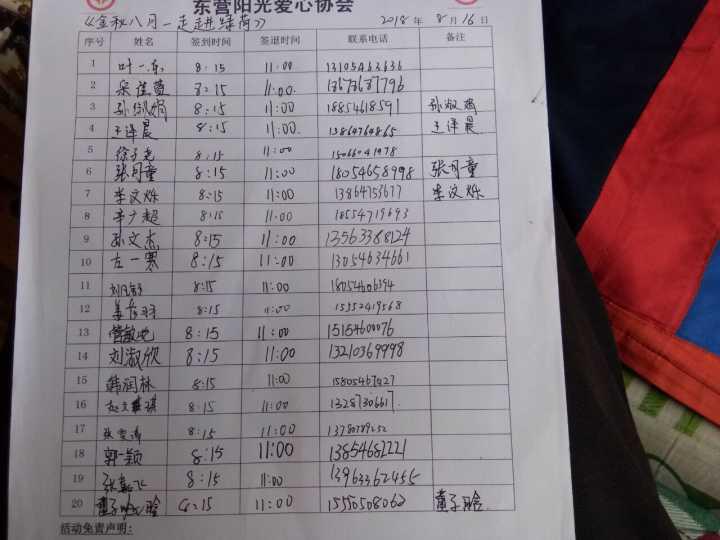 东营阳光爱心协会
《金秋八月-走进绿荷》 2018年 8月16日
序号 姓名 签到时间 签退时间 联系电话 备注
1 叶一东 8:15 11:00 13105463636
2 8:15 11:00. 13673637796
3 8:15 11:00 18854618591
4 王泽晨 8:15 11:00. 王泽晨
5 徐子尧 8:15 11:00 15066041978
6 张月童 8:15 11:00 18054658998 张月童
7 李汶烁 8:15 11:00 13864753677 李汶烁
8 辛广超 8:15 11:00 18554719693
9 孙文杰 8:15 11:00 13563388124
10 左一寒 8:15 11:00 13054634661
11 8:15 11:00 18054606394
12 8:15 11:00 15352419568
13 8:15 11:00 15154600076
14 刘淑欣 8:15 11:00 13210369998
15 韩润林 8:15 11:00 15805467427
16 8:15 11:00 1328730661
17 8:15 11:00 13780789252
18 郭一颖 8:15 11:00 13854682221
19 8:15 11:00 13963362455
20 童子晗 8:15 11:00 15550508060 童子晗
活动免责声明: